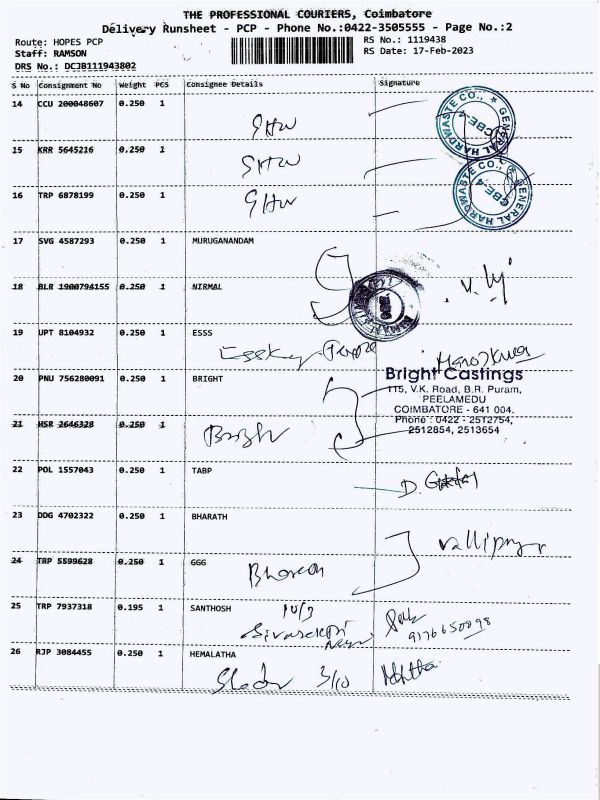 THE PROFESSIONAL COURIERS, Coimbatore
Delivery Runsheet - PCP - Phone No.:0422-3505555 - Page No.:2
Route: HOPES PCP
RS No.: 1119438
Staff: RAMSON
RS Date: 17-Feb-2023
DRS No.: DCJB111943802
S No Consignment No Weight PCS Consignee Details Signature
14 CCU 200048607 0.250 1
GHW
15 KRR 5645216 0.250 1
GHW
16 TRP 6878199 0.250 1
GHW
GENERAL HARDWASTE CO., CBE-4
GENERAL HARDWASTE CO., CBE-4
17 SVG 4587293 0.250 1 MURUGANANDAM
18 BLR 1900794155 0.250 1 NIRMAL
19 UPT 8104932 0.250 1 ESSS
20 PNU 756280091 0.250 1 BRIGHT
Bright Castings
115, V.K. Road, B.R. Puram,
PEELAMEDU
COIMBATORE - 641 004.
Phone : 0422 - 2512754,
2512854, 2513654
21 HSR 2646328 0.250 1
Bright
22 POL 1557043 0.250 1 TABP
23 DDG 4702322 0.250 1 BHARATH
24 TRP 5599628 0.250 1 GGG
25 TRP 7937318 0.195 1 SANTHOSH
9176650098
26 RJP 3084455 0.250 1 HEMALATHA
3/10